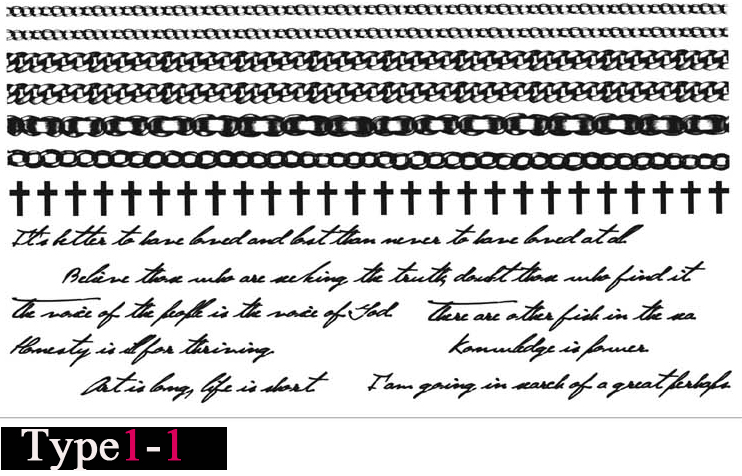 It's better to have loved and lost than never to have loved at all
Believe those who are seeking the truth, doubt those who find it
The voice of the people is the voice of God There are other fish in the sea
Honesty is ill for thriving. Konwledge is power.
Art is long, life is short I am going in search of a great perhaps
Type1-1